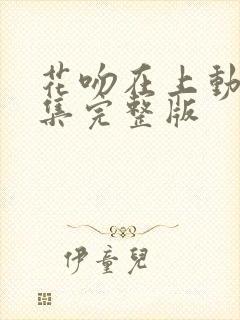 花吻在上動
集完整版
伊童兒